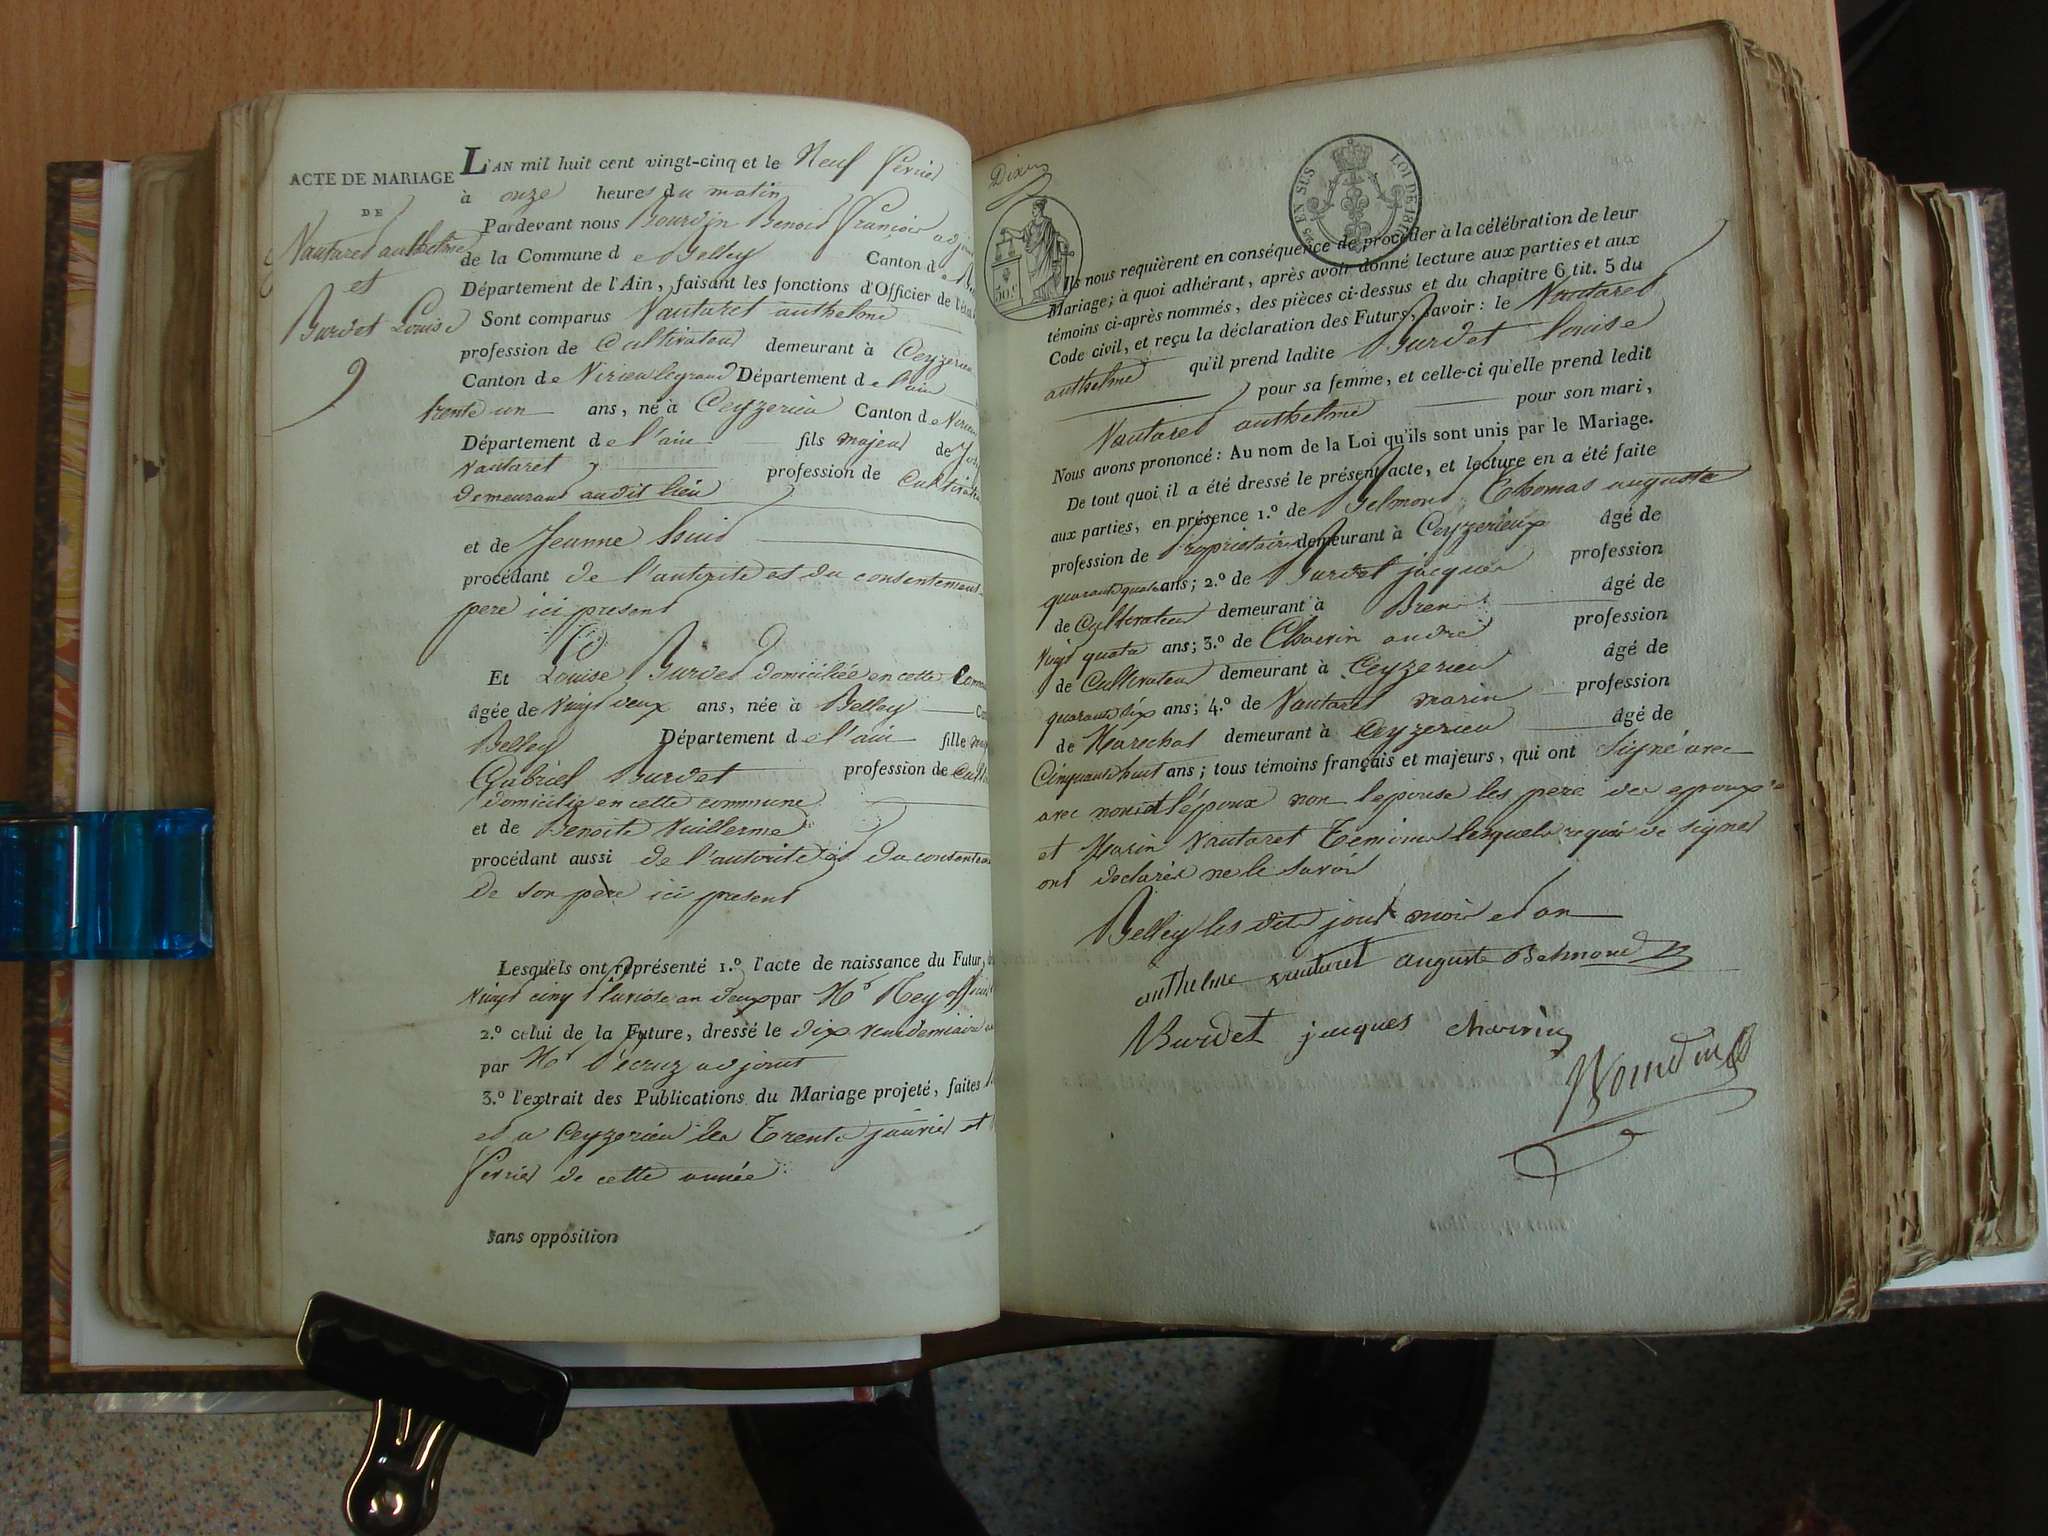 ACTE DE MARIAGE
DE
Vautaret anthelme
et
Burdet Louise
9
L'AN mil huit cent vingt-cinq et le Neuf fevrier
à onze heures du matin
Pardevant nous Bourdin Benoit François adjoint
de la Commune de Belley Canton de
Département de l'Ain, faisant les fonctions d'Officier de l'état
Sont comparus Vautaret anthelme
profession de Cultivateur demeurant à Ceyzerieu
Canton de Virieu le grand Département de l'ain
trente un ans, né à Ceyzerieu Canton de Virieu
Département de l'ain fils majeur de
Vautaret profession de Cultivateur
demeurant audit lieu
et de Jeanne
procédant de l'autorité et du consentement
pere ici present
Et Louise Burdet domiciliée en cette Commune
âgée de vingt deux ans, née à Belley
Belley Département de l'ain fille
Gabriel Burdet profession de
domicilié en cette commune
et de Benoite Vuillerme
procédant aussi de l'autorité et du consentement
de son père ici present
Lesquels ont représenté 1.º l'acte de naissance du Futur,
vingt cinq pluviose an deux par Mr Rey officier
2.º celui de la Future, dressé le dix vendemiaire
par Mr adjoint
3.º l'extrait des Publications du Mariage projeté, faites
et a Ceyzerieu les trente janvier et
fevrier de cette année
sans opposition
Dixer
50.c
EN SUS
LOI DE 1816
Ils nous requièrent en conséquence de procéder à la célébration de leur
Mariage; à quoi adhérant, après avoir donné lecture aux parties et aux
témoins ci-après nommés, des pièces ci-dessus et du chapitre 6 tit. 5 du
Code civil, et reçu la déclaration des Futurs, savoir: le Vautaret
anthelme qu'il prend ladite Burdet louise
pour sa femme, et celle-ci qu'elle prend ledit
Vautaret anthelme pour son mari,
Nous avons prononcé: Au nom de la Loi qu'ils sont unis par le Mariage.
De tout quoi il a été dressé le présent acte, et lecture en a été faite
aux parties, en présence 1.º de Belmond Thomas auguste
profession de Propriétaire demeurant à Ceyzerieux âgé de
quarante quatre ans; 2.º de Burdet jacques profession
de Cultivateur demeurant à Bren âgé de
vingt quatre ans; 3.º de Charvin andré profession
de Cultivateur demeurant à Ceyzerieu âgé de
quarante six ans; 4.º de Vautaret marin profession
de Marechal demeurant à Ceyzerieu âgé de
Cinquante huit ans; tous témoins français et majeurs, qui ont signé avec
avec nous et l'époux non l'epouse les pere des epoux
et Marin Vautaret Temoins lesquels requis de signer
ont declarés ne le savoir
Belley les dits jour mois et an
anthelme vautaret auguste Belmond
Burdet jacques charvin
Bourdin